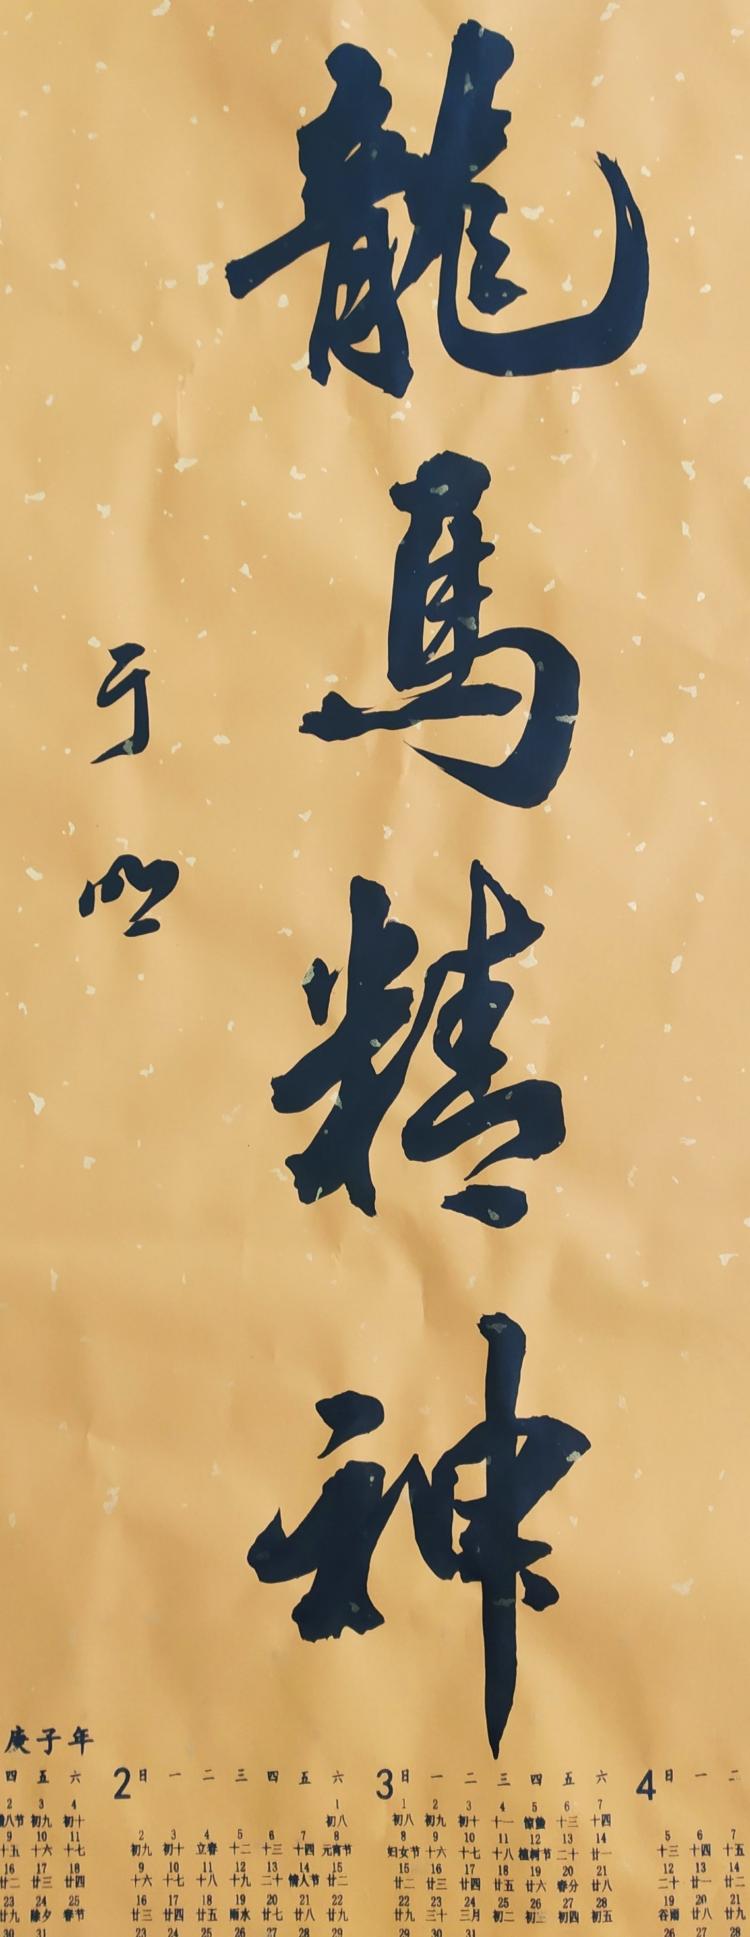 龍馬精神
于
庚子年
四 五 六
2 3 4
八节 初九 初十
9 10 11
十五 十六 十七
16 17 18
廿二 廿三 廿四
23 24 25
廿九 除夕 春节
30 31
2 日 一 二 三 四 五 六
1
初八
2 3 4 5 6 7 8
初九 初十 立春 十二 十三 十四 元宵节
9 10 11 12 13 14 15
十六 十七 十八 十九 二十 情人节 廿二
16 17 18 19 20 21 22
廿三 廿四 廿五 雨水 廿七 廿八 廿九
23 24 25 26 27 28 29
3 日 一 二 三 四 五 六
1 2 3 4 5 6 7
初八 初九 初十 十一 惊蛰 十三 十四
8 9 10 11 12 13 14
妇女节 十六 十七 十八 植树节 二十 廿一
15 16 17 18 19 20 21
廿二 廿三 廿四 廿五 廿六 春分 廿八
22 23 24 25 26 27 28
廿九 三十 三月 初二 初三 初四 初五
29 30 31
4 日 一 二
5 6 7
十三 十四 十五
12 13 14
二十 廿一 廿二
19 20 21
谷雨 廿八 廿九
26 27 28